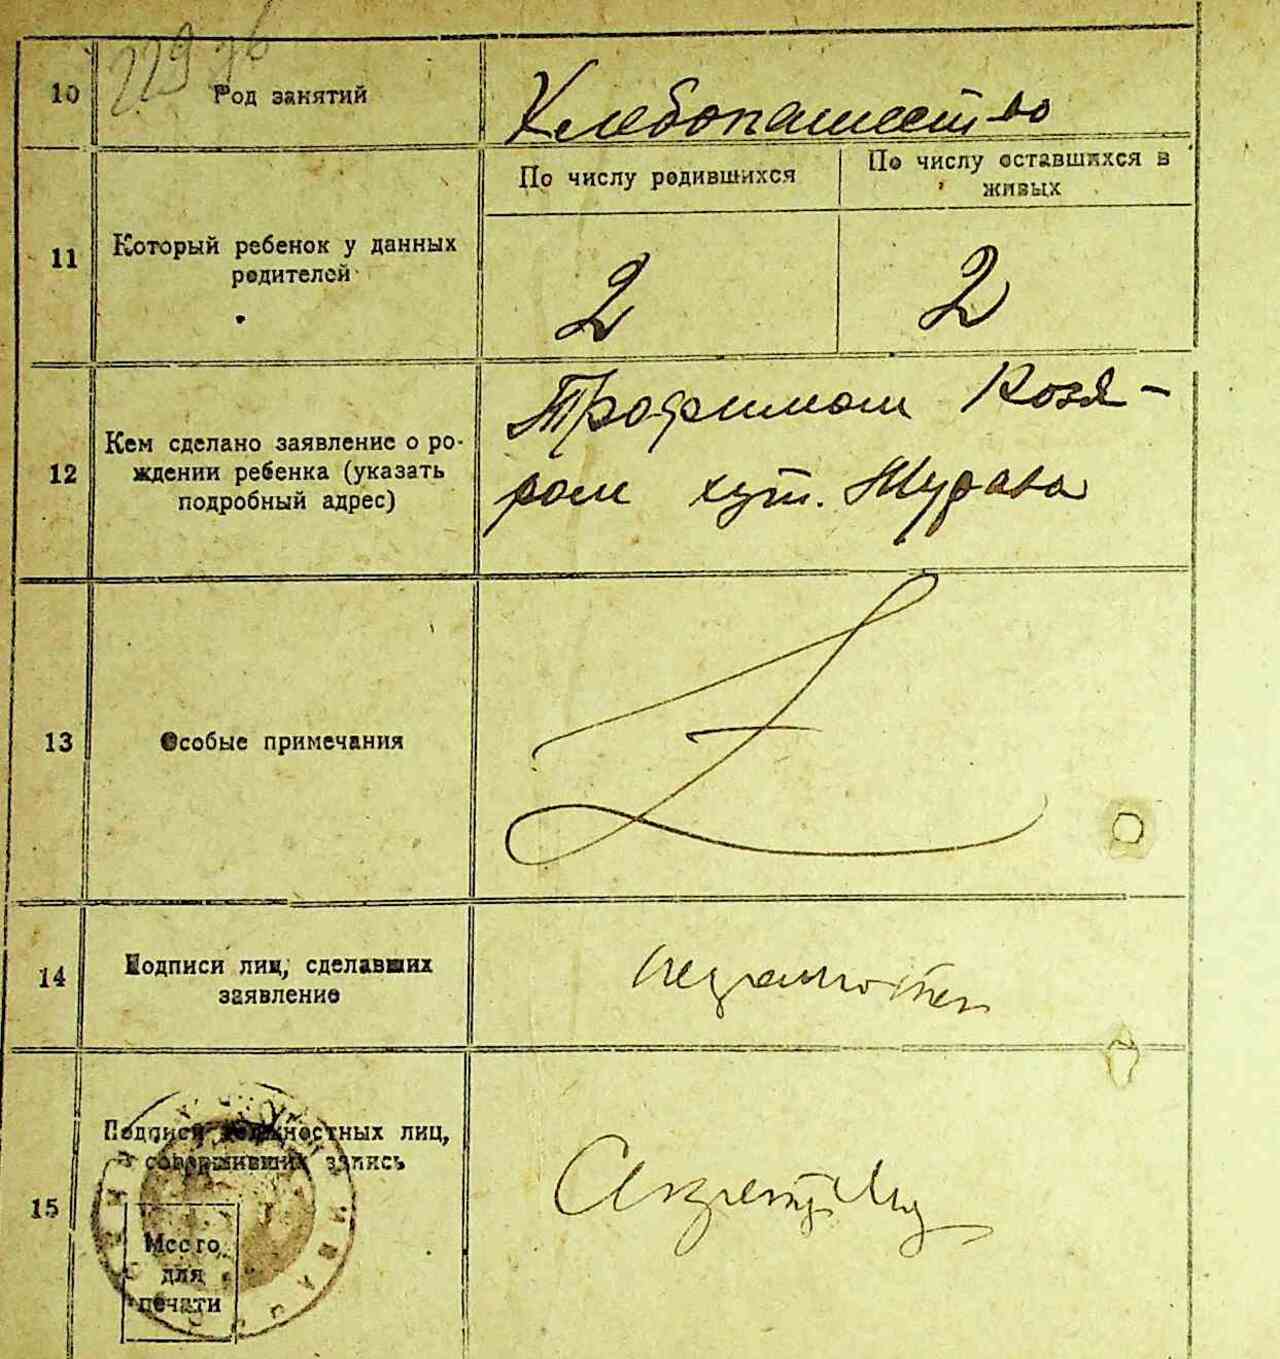 10
Род занятий
Хлебопашество
11
Который ребенок у данных
родителей
По числу родившихся
По числу оставшихся в
живых
2
2
12
Кем сделано заявление о ро-
ждении ребенка (указать
подробный адрес)
Трофимом Козя-
ром хут. Журава
13
Особые примечания
14
Подписи лиц, сделавших
заявление
неграмотен
15
Подписи должностных лиц,
совершивших запись
Место
для
печати